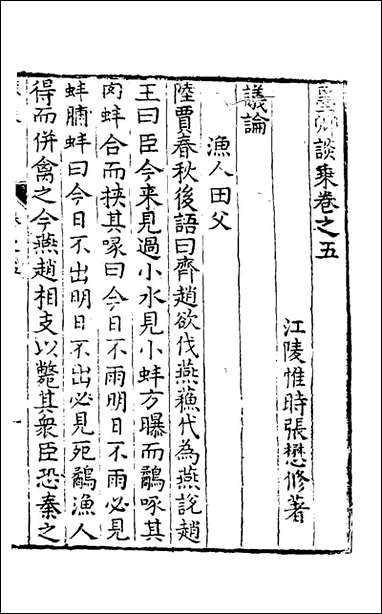 墨卿談乘卷之五
江陵惟時張懋修著
議論
漁人田父
陸賈春秋後語曰齊趙欲伐燕蘓代為燕說趙
王曰臣今来見過小水見小蚌方曝而鷸啄其
肉蚌合而挾其喙曰今日不雨明日不雨必見
蚌脯蚌曰今日不出明日不出必見死鷸漁人
得而併禽之今燕趙相支以斃其衆臣恐秦之
卷之五
一